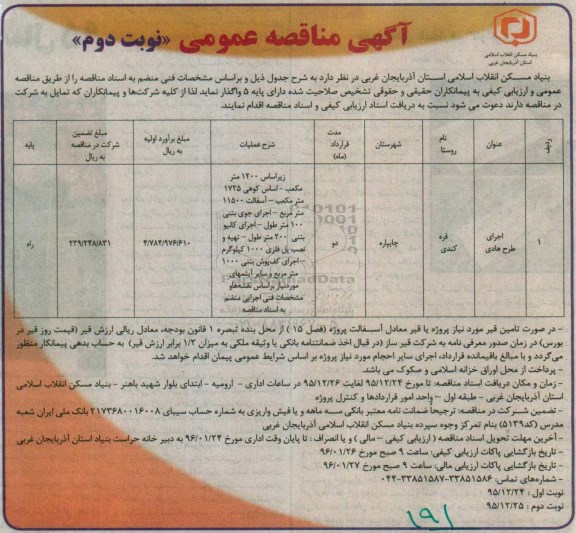 آگهی مناقصه عمومی «نوبت دوم»
بنیاد مسکن انقلاب اسلامی
استان آذربایجان غربی
بنیاد مسکن انقلاب اسلامی استان آذربایجان غربی در نظر دارد به شرح جدول ذیل و براساس مشخصات فنی منضم به اسناد مناقصه را از طریق مناقصه
عمومی و ارزیابی کیفی به پیمانکاران حقیقی و حقوقی تشخیص صلاحیت شده دارای پایه ۵ واگذار نماید لذا از کلیه شرکت‌ها و پیمانکاران که تمایل به شرکت
در مناقصه دارند دعوت می شود نسبت به دریافت اسناد ارزیابی کیفی و اسناد مناقصه اقدام نمایند.
ردیف | عنوان | نام روستا | شهرستان | مدت قرارداد (ماه) | شرح عملیات | مبلغ برآورد اولیه به ریال | مبلغ تضمین شرکت در مناقصه به ریال | پایه
۱ | اجرای طرح هادی | قره کندی | چایپاره | دو
زیراساس ۱۲۰۰ متر
مکعب - اساس کوهی ۱۷۲۵
متر مکعب - آسفالت ۱۱۵۰۰
متر مربع - اجرای جوی بتنی
۱۰۰ متر طول - اجرای کانیو
بتنی ۲۰۰ متر طول - تهیه و
نصب پل فلزی ۱۰۰۰ کیلوگرم
- اجرای کف‌پوش بتنی ۱۰۰۰
متر مربع و سایر آیتمهای
موردنیاز براساس نقشه‌ها و
مشخصات فنی اجرایی منضم
به اسناد مناقصه
۴/۷۸۴/۹۷۶/۶۱۰ | ۲۳۹/۲۴۸/۸۳۱ | راه
- در صورت تامین قیر مورد نیاز پروژه یا قیر معادل آسفالت پروژه (فصل ۱۵) از محل بنده تبصره ۱ قانون بودجه، معادل ریالی ارزش قیر (قیمت روز قیر در
بورس) در زمان صدور معرفی نامه به شرکت قیر ساز (در قبال اخذ ضمانتنامه بانکی یا وثیقه ملکی به میزان ۱/۲ برابر ارزش قیر) به حساب بدهی پیمانکار منظور
می‌گردد و با مبلغ باقیمانده قرارداد، اجرای سایر احجام مورد نیاز پروژه بر اساس شرایط عمومی پیمان اقدام خواهد شد.
- پرداخت از محل اوراق خزانه اسلامی و صکوک می باشد.
- زمان و مکان دریافت اسناد مناقصه: تا مورخ ۹۵/۱۲/۲۴ لغایت ۹۵/۱۲/۲۶ در ساعات اداری - ارومیه - ابتدای بلوار شهید باهنر - بنیاد مسکن انقلاب اسلامی
استان آذربایجان غربی - طبقه اول - واحد امور قراردادها و کنترل پروژه
- تضمین شرکت در مناقصه: ترجیحاً ضمانت نامه معتبر بانکی سه ماهه و یا فیش واریزی به شماره حساب سیبای ۲۱۷۳۶۸۰۰۱۶۰۰۸ بانک ملی ایران شعبه
مدرس (کد۵۱۳۹) بنام تمرکز وجوه سپرده بنیاد مسکن انقلاب اسلامی آذربایجان غربی
- آخرین مهلت تحویل اسناد مناقصه (ارزیابی کیفی - مالی) و یا انصراف : تا پایان وقت اداری مورخ ۹۶/۰۱/۲۴ به دبیر خانه حراست بنیاد استان آذربایجان غربی
- تاریخ بازگشایی پاکات ارزیابی کیفی: ساعت ۹ صبح مورخ ۹۶/۰۱/۲۶
- تاریخ بازگشایی پاکات ارزیابی مالی: ساعت ۹ صبح مورخ ۹۶/۰۱/۲۷
- شماره‌های تماس: ۳۳۸۵۱۵۸۶-۳۳۸۵۱۵۸۷-۰۴۴
نوبت اول : ۹۵/۱۲/۲۴
نوبت دوم : ۹۵/۱۲/۲۵